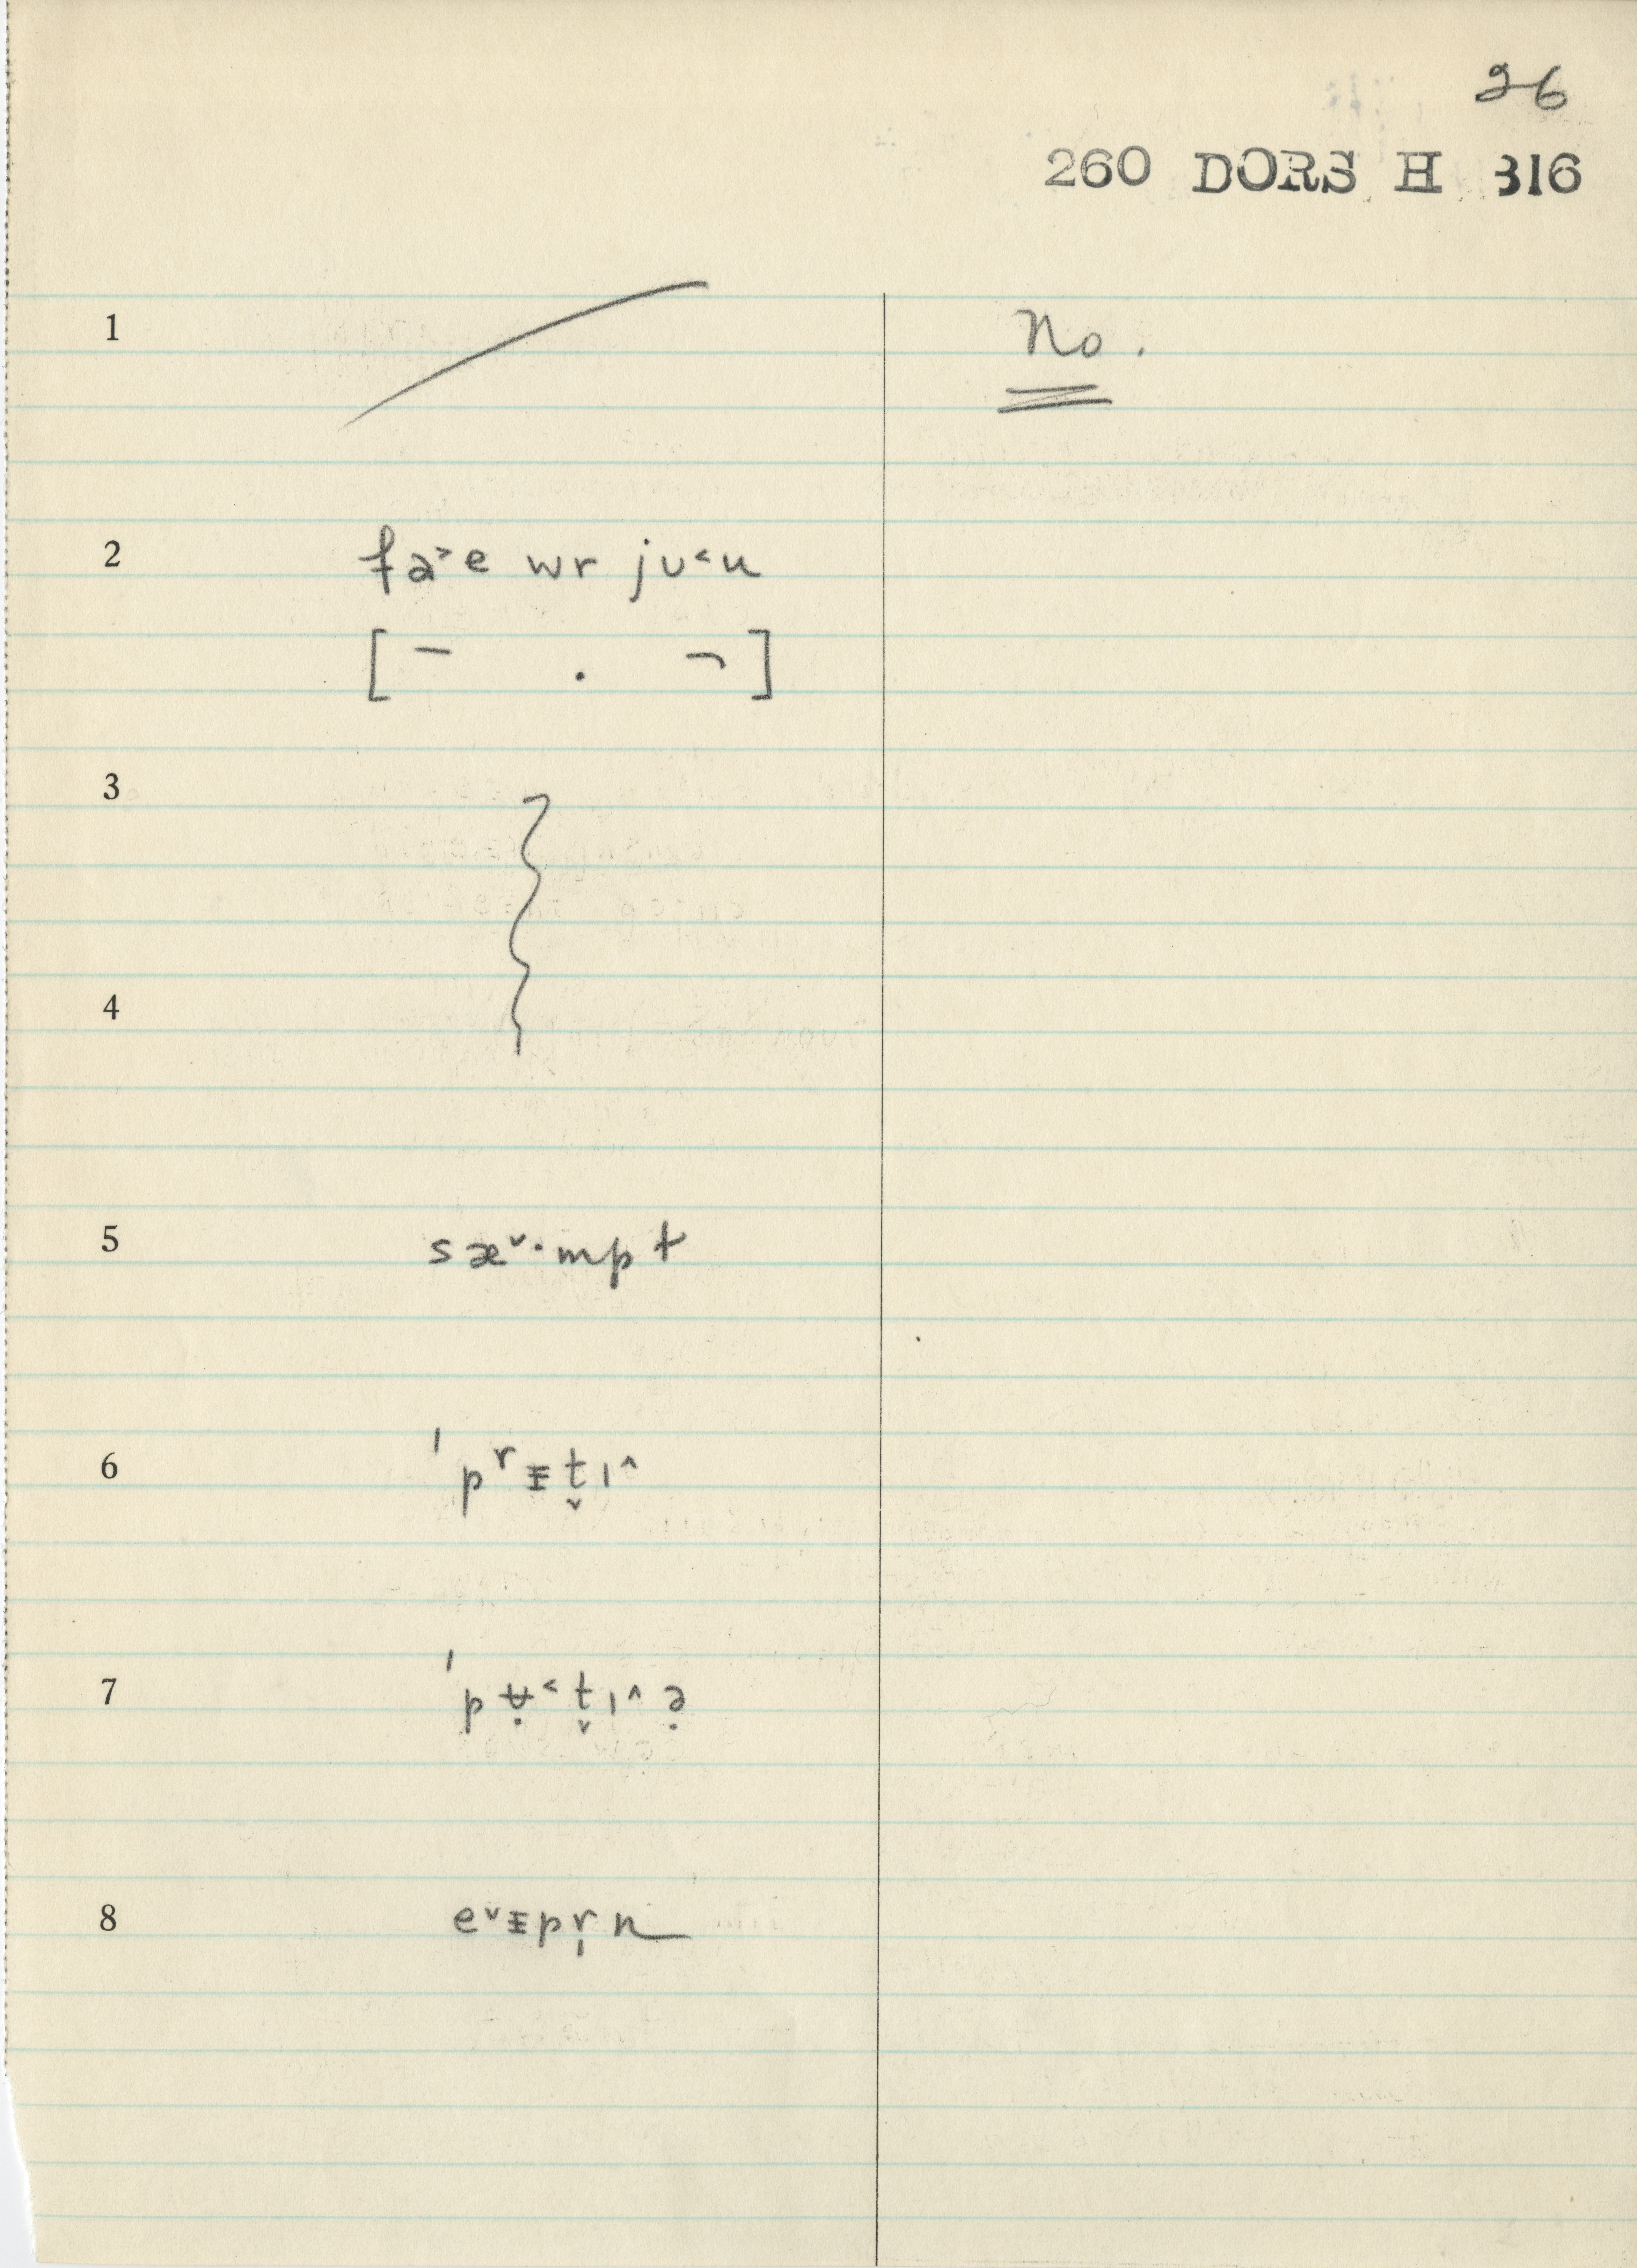 26
260 DORS H 316
1 No.
2 fa˃e wr jʊ˂u
[ – . ¬ ]
3
4
5 sæ˅·mpt
6 ˈpʳᵻt̬ɪ˄
7 ˈpʉ̣˂t̬ɪ˄ə̣
8 e˅ᵻpr̩n